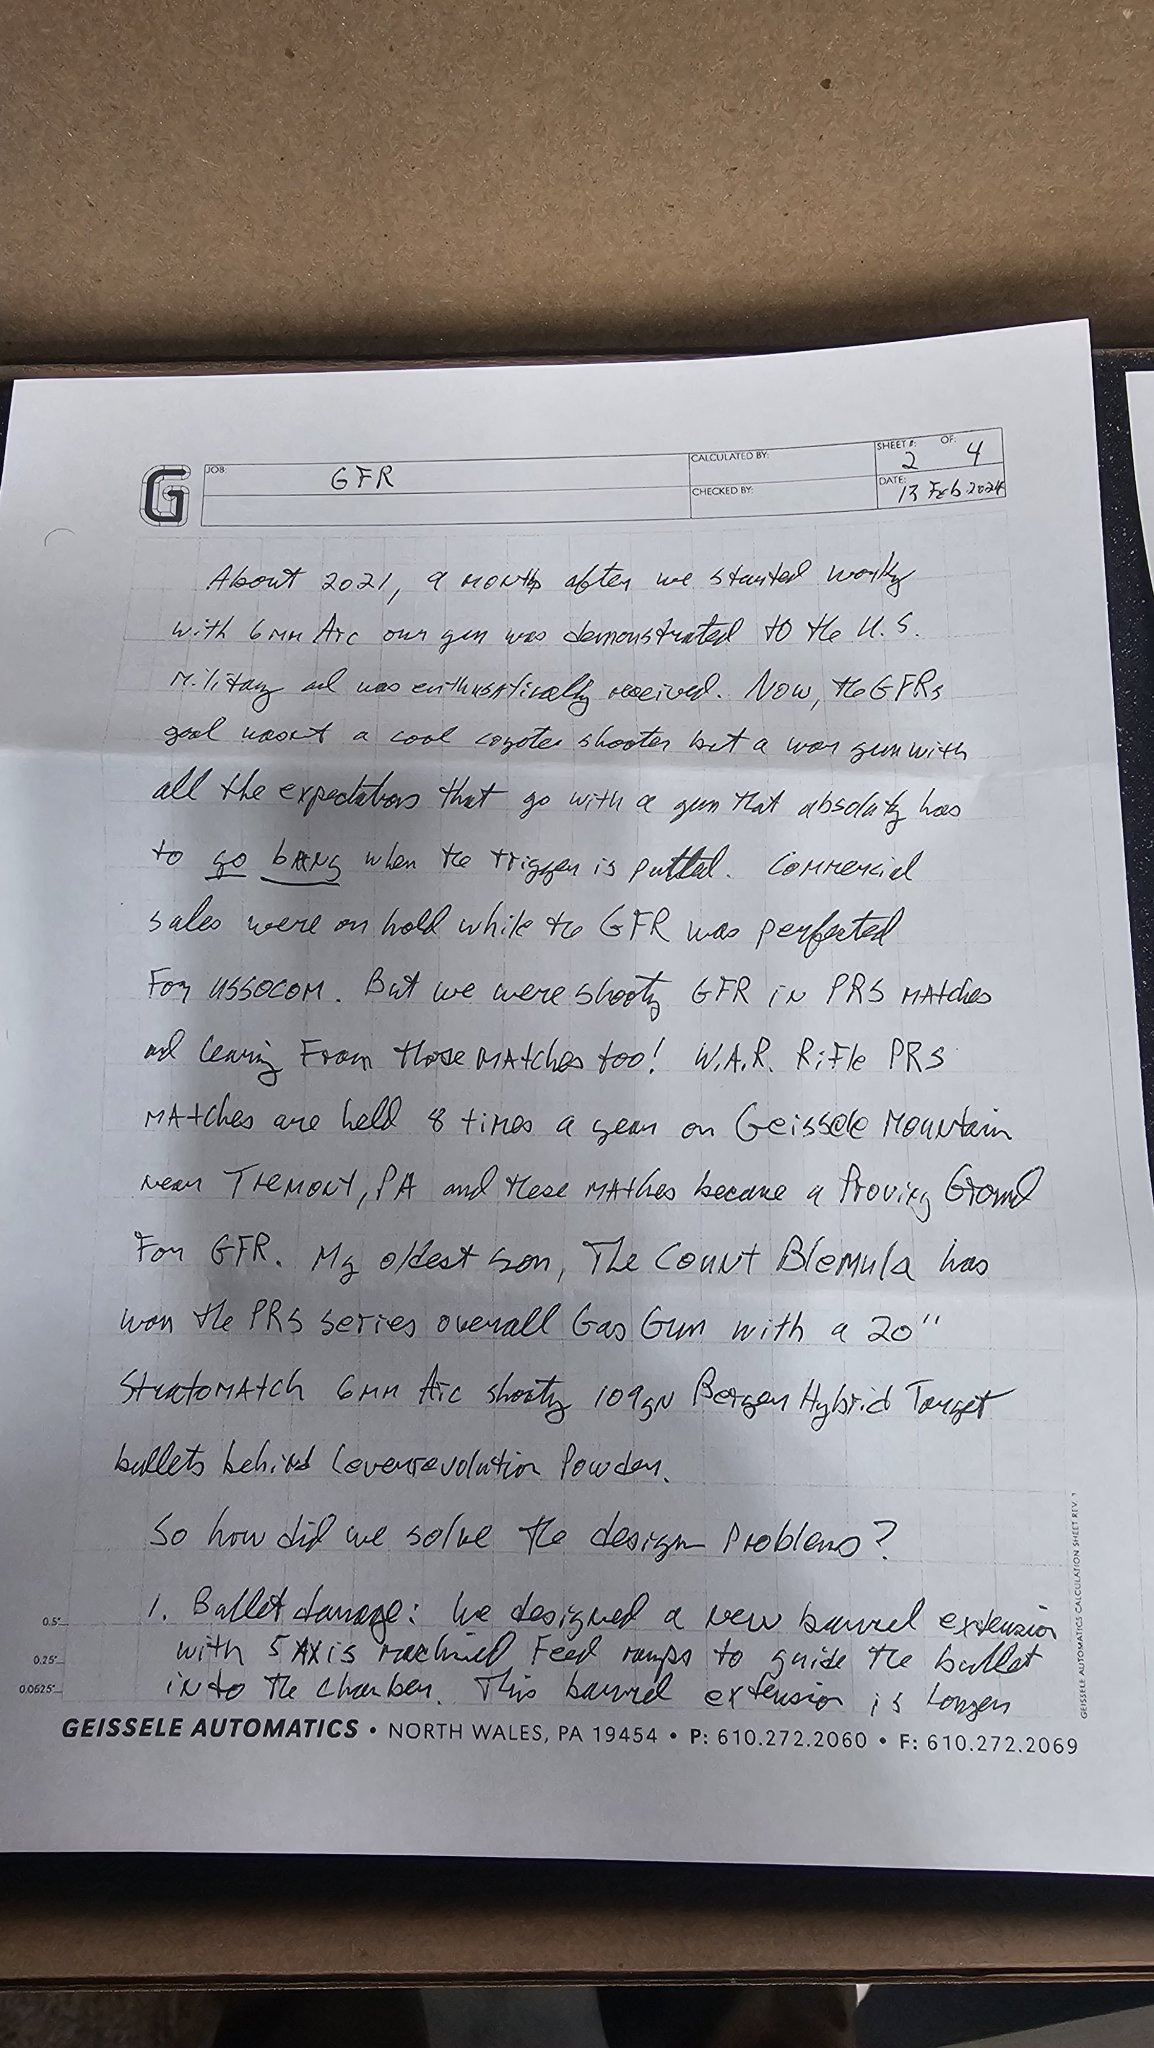 G
JOB: GFR
CALCULATED BY:
CHECKED BY:
SHEET #: 2 OF: 4
DATE: 13 Feb 2024
About 2021, a month after we started working
with 6mm Arc our gun was demonstrated to the U.S.
Military and was enthusatically received. Now, the GFRs
goal wasnt a cool coyote shooter but a war gun with
all the expectations that go with a gun that absolutely has
to go bANG when the trigger is pulled. Commercial
sales were on hold while the GFR was perfected
For USSOCOM. But we were shooting GFR in PRS matches
and learning From those matches too! W.A.R. Rifle PRS
matches are held 8 times a year on Geissele Mountain
near Tremont, PA and these matches became a Proving Ground
For GFR. My oldest son, The Count Blemula has
won the PRS series overall Gas Gun with a 20"
Stratomatch 6mm Arc shooting 109gn Berger Hybrid Target
bullets behind Leverrevolution Powder.
So how did we solve the design Problems?
1. Bullet damage: We designed a new barrel extension
with 5 Axis machined Feed ramps to guide the bullet
into the chamber. This barrel extension is longer
0.5"
0.25"
0.0625"
GEISSELE AUTOMATICS CALCULATION SHEET REV. 1
GEISSELE AUTOMATICS • NORTH WALES, PA 19454 • P: 610.272.2060 • F: 610.272.2069